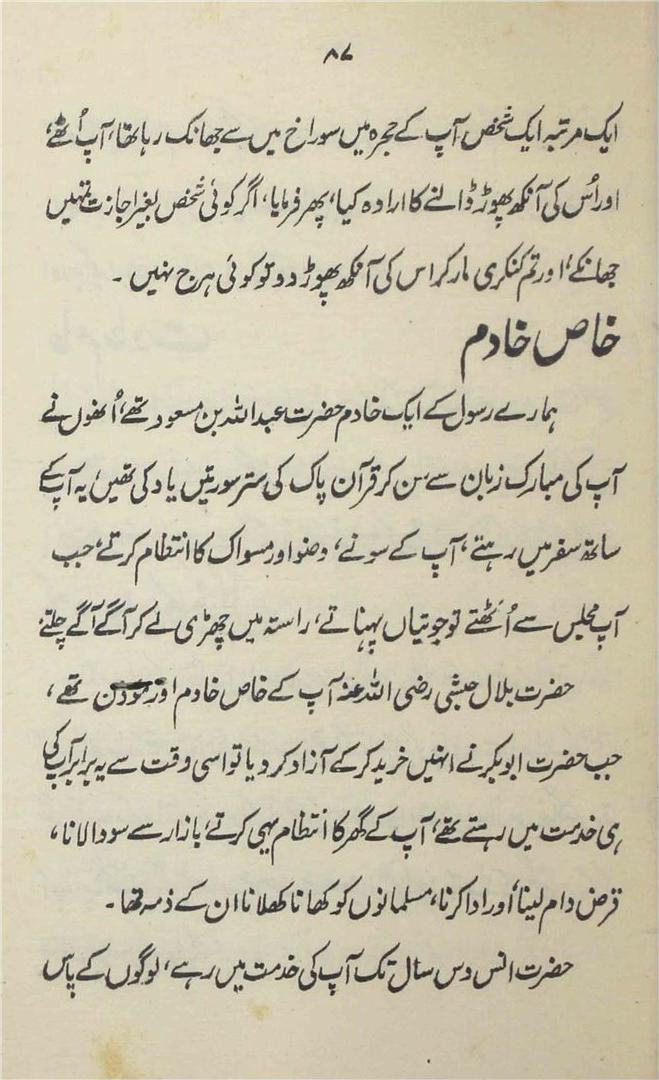 ۸۷
ایک مرتبہ ایک شخص آپ کے حجرہ میں سوراخ میں سے جھانک رہا تھا، آپ اُٹھے،
اور اُس کی آنکھ پھوڑ ڈالنے کا ارادہ کیا، پھر فرمایا، اگر کوئی شخص بغیر اجازت تمہیں
جھانکے، اور تم کنکری مار کر اس کی آنکھ پھوڑ دو تو کوئی ہرج نہیں ۔
خاص خادم
ہمارے رسول کے ایک خادم حضرت عبداللہ بن مسعود تھے، اُنھوں نے
آپ کی مبارک زبان سے سن کر قرآن پاک کی ستر سورتیں یاد کی تھیں، یہ آپ کے
ساتھ سفر میں رہتے، آپ کے سونے، وضو اور مسواک کا انتظام کرتے، جب
آپ مجلس سے اُٹھتے تو جوتیاں پہناتے، راستہ میں چھڑی لے کر آگے آگے چلتے
حضرت بلال حبشی رضی اللہ عنہ آپ کے خاص خادم اور موذن تھے،
جب حضرت ابوبکر نے انہیں خرید کر کے آزاد کر دیا تو اسی وقت سے یہ برابر آپ کی
ہی خدمت میں رہتے تھے، آپ کے گھر کا انتظام یہی کرتے، بازار سے سودا لانا،
قرض دام لینا، اور ادا کرنا، مسلمانوں کو کھانا کھلانا ان کے ذمہ تھا ۔
حضرت انس دس سال تک آپ کی خدمت میں رہے، لوگوں کے پاس